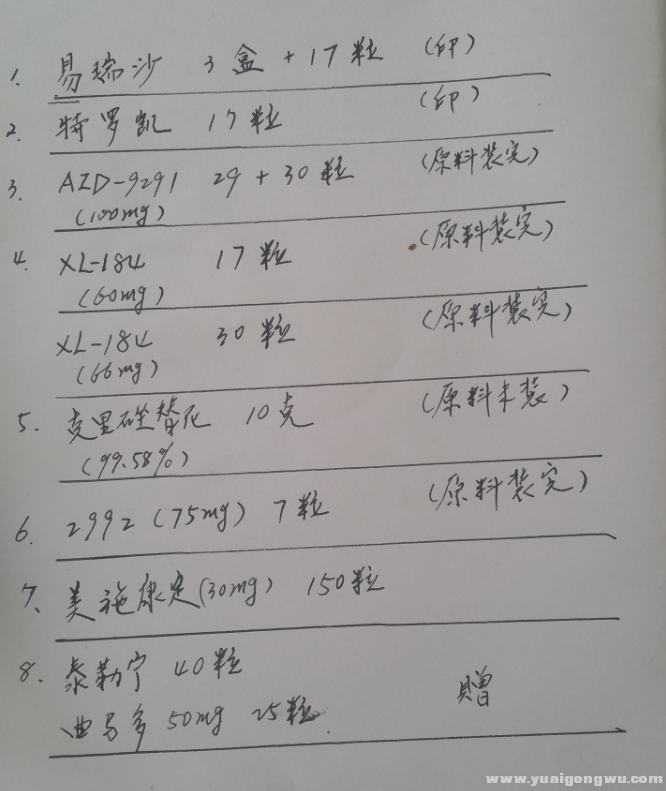 1. 易瑞沙 3盒+17粒 (印)
2. 特罗凯 17粒 (印)
3. AZD-9291 29+30粒 (原料装完)
(100mg)
4. XL-184 17粒 (原料装完)
(60mg)
XL-184 30粒 (原料装完)
(66mg)
5. 克里唑替尼 10克 (原料未装)
(99.58%)
6. 2992 (75mg) 7粒 (原料装完)
7、美施康定(30mg) 150粒
8. 泰勒宁 40粒
曲马多 50mg 25粒 贈
www.yuaigongwu.com